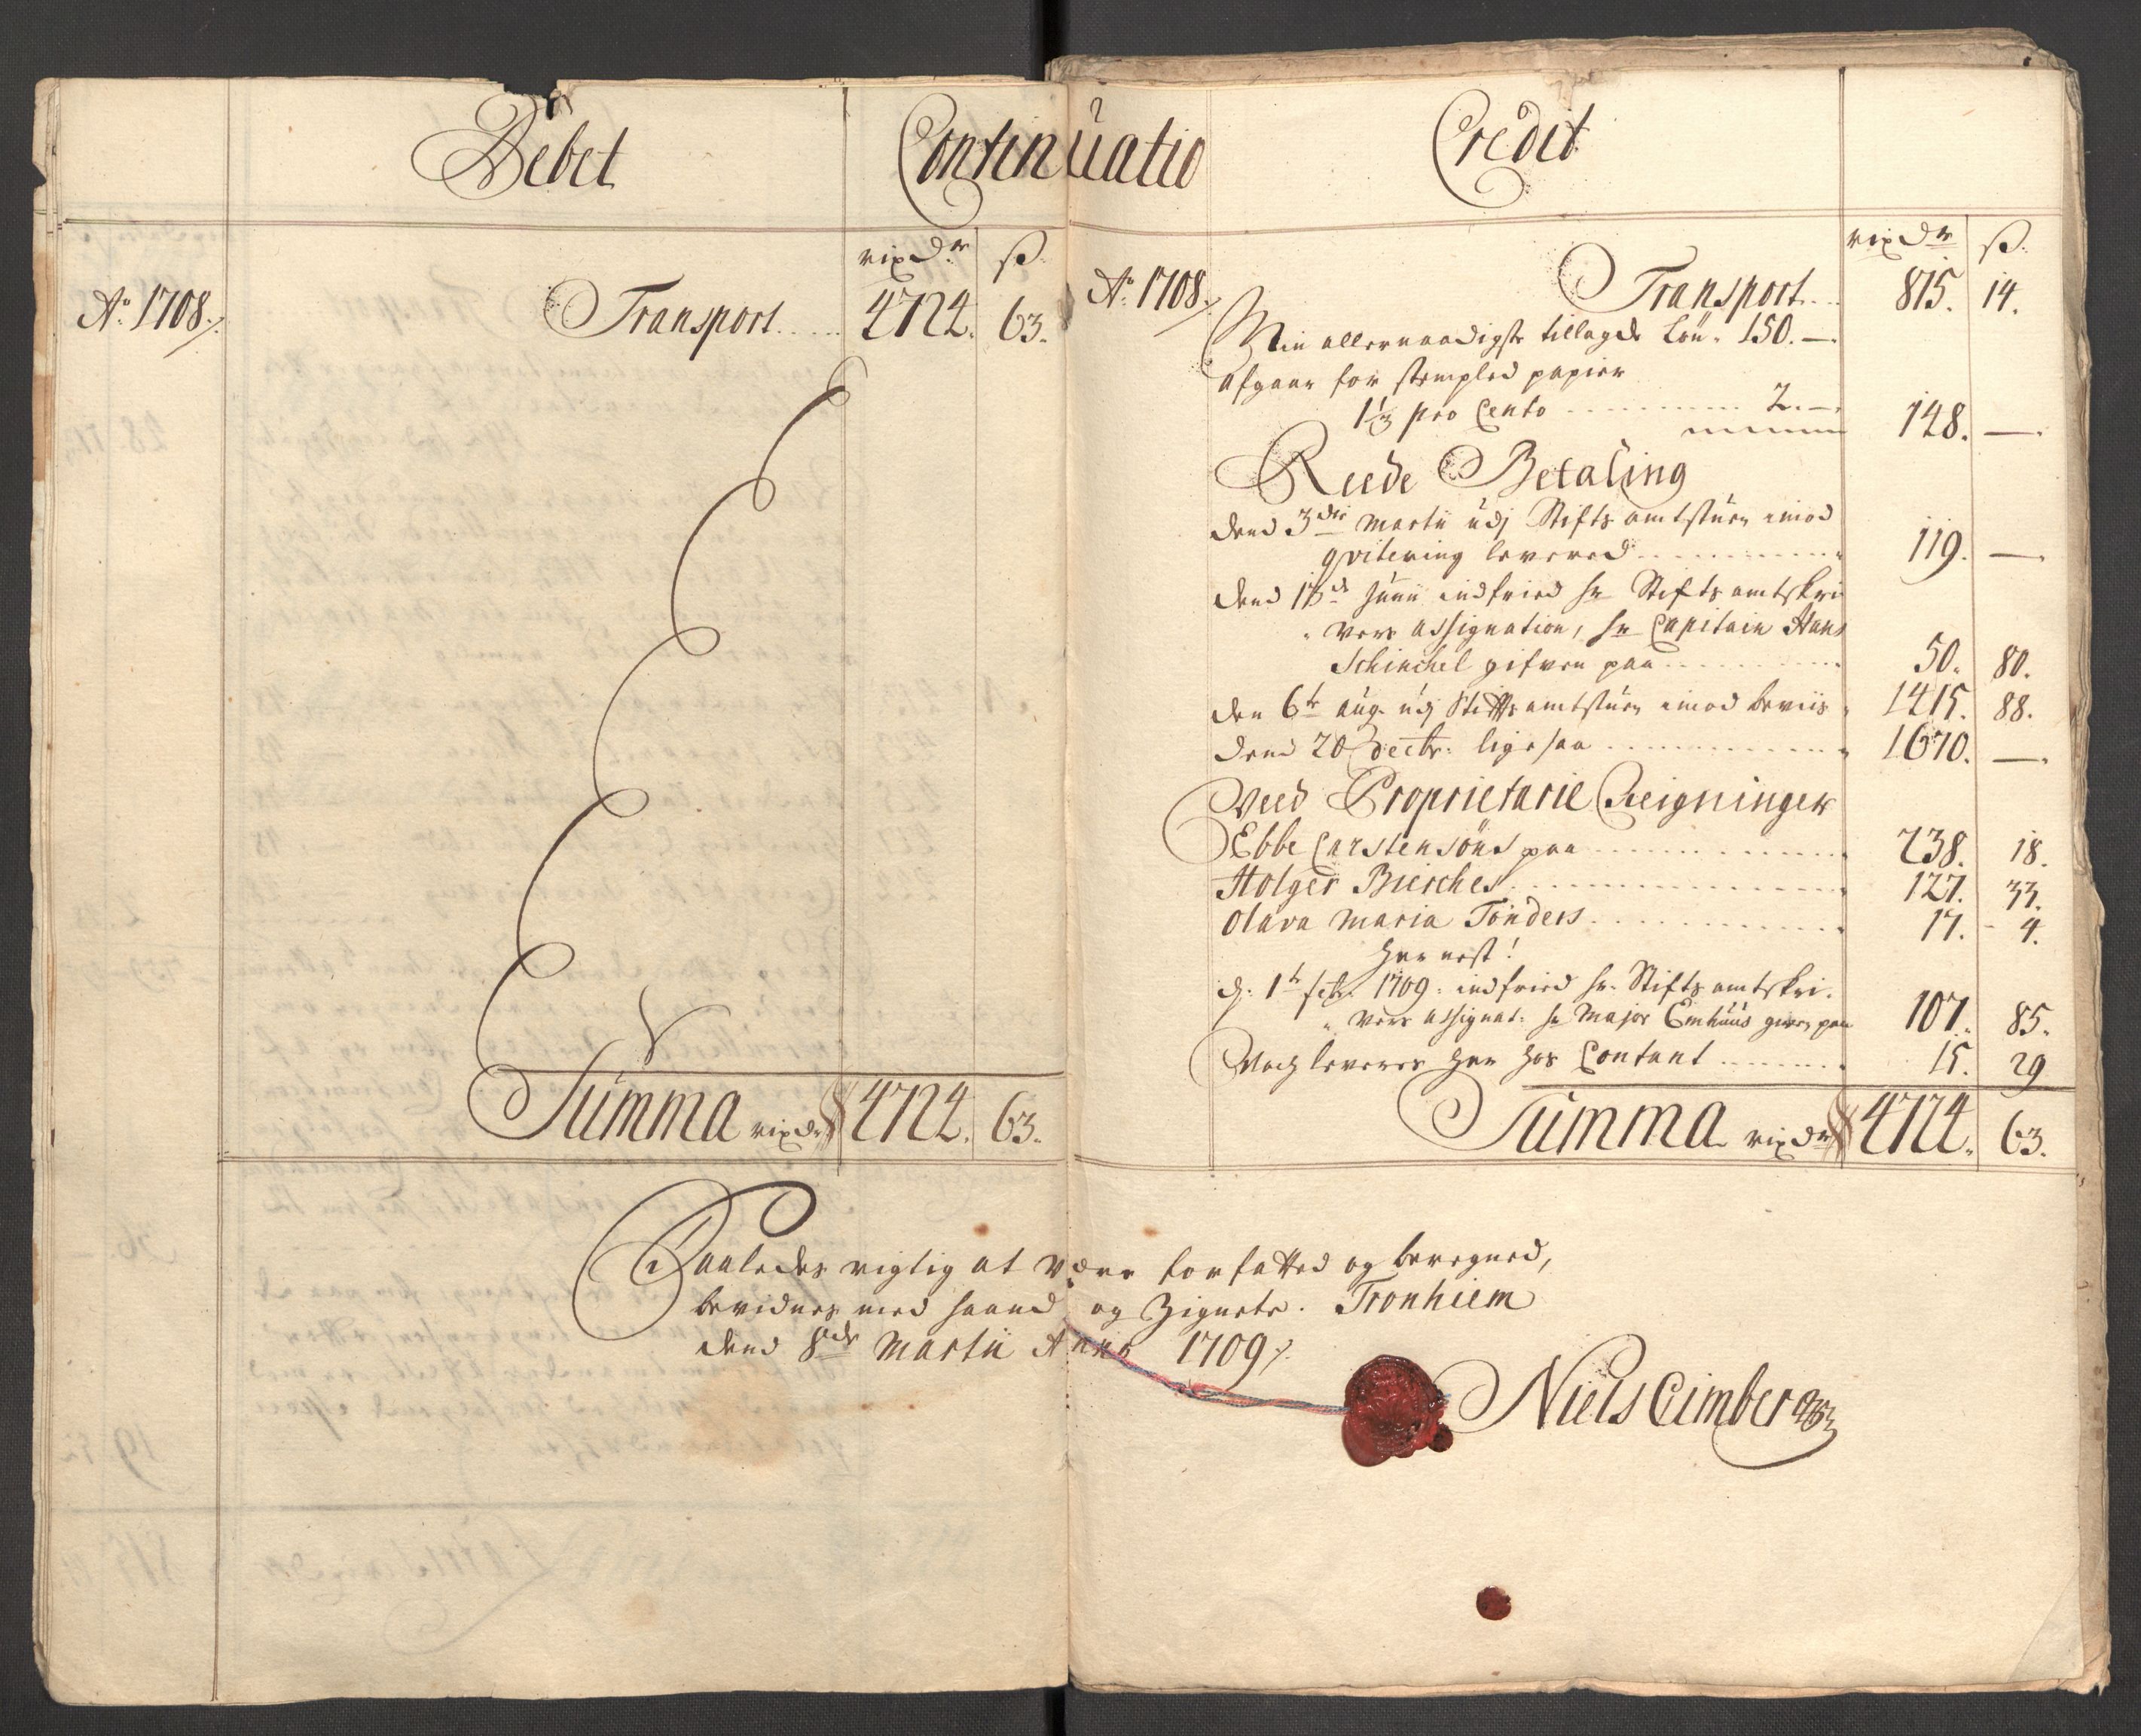 Debet Continuatio Credit
rixdr ß
Ao. 1708. Transport 4724. 63.
rixdr ß.
Ao. 1708. Transport 815. 14.
Min allernaadigste tillagde Løn. 150. —
afgaar for stempled papier
1⅓ pro Cento 2. — 148. —
Reede Betaling
dend 3die Martii udj Stiftsamtstuen imod
qvitering levered 119. —
dend Junii indfried hr Stiftsamtskri
vers assignation, hr Capitain Hans
Schinchel gifven paa 50. 80.
den 6te aug. udj Stiftsamtstuen imod beviis 1415. 88.
dend 20 decbr. ligesaa 1670. —
Ved Proprietarie Reigninger
Ebbe Carstensøns paa 238. 18.
Holger Bierches 127. 33.
Olava Maria Tønders 17. 4.
Her nest!
d. 1te febr. 1709. indfried hr. Stiftsamtskri.
vers assignat. hr Major Emhuus given paa 107. 85.
Noch leveres her hos Contant 15. 29
Summa rixdr 4724. 63.
Summa rixdr 4724. 63.
Saaledes rigtig at være forfatted og beregned,
bevidnes med haand og Zignete. Tronhiem
dend 8de Martii Anno 1709
Niels Cimber